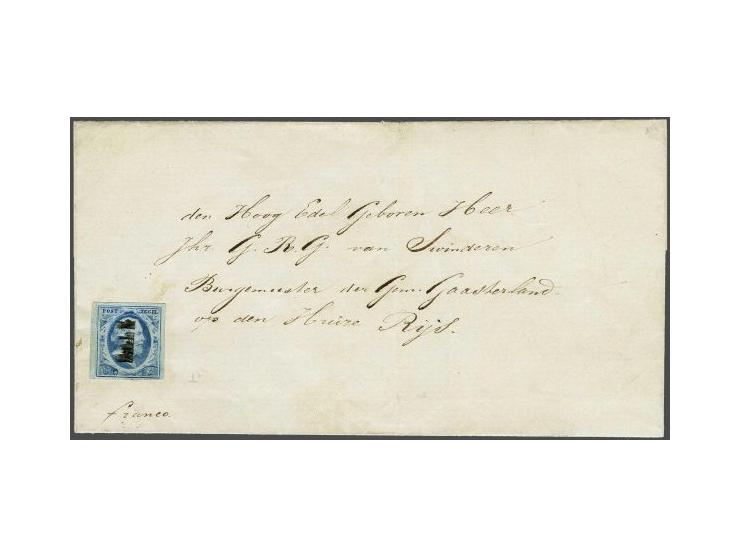 den Hoog Edel Geboren Heer
Jhr. G. R. G. van Swinderen
Burgemeester der Gem. Gaasterland
op den Huize Rijs.
POST ZEGEL
franco.